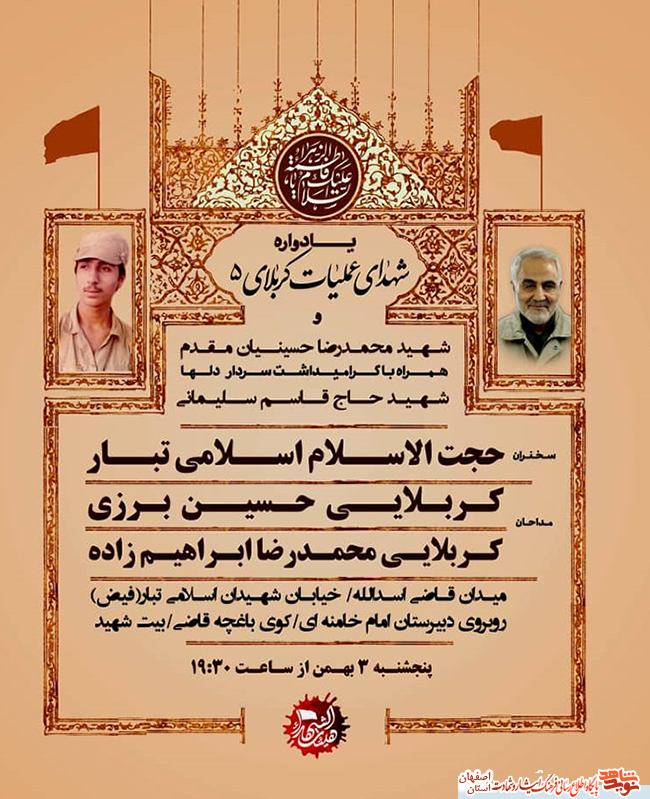 السلام علیک یا فاطمة الزهراء
یادواره
شهدای عملیات کربلای ۵
و
شهید محمدرضا حسینیان مقدم
همراه با گرامیداشت سردار دلها
شهید حاج قاسم سلیمانی
سخنران حجت الاسلام اسلامی تبار
مداحان
کربلایی حسین برزی
کربلایی محمدرضا ابراهیم زاده
میدان قاضی اسدالله/ خیابان شهیدان اسلامی تبار(فیض)
روبروی دبیرستان امام خامنه ای/کوی باغچه قاضی/بیت شهید
پنجشنبه ۳ بهمن از ساعت ۱۹:۳۰
نوید شاهد
پایگاه اطلاع رسانی فرهنگ ایثار و شهادت
استان اصفهان